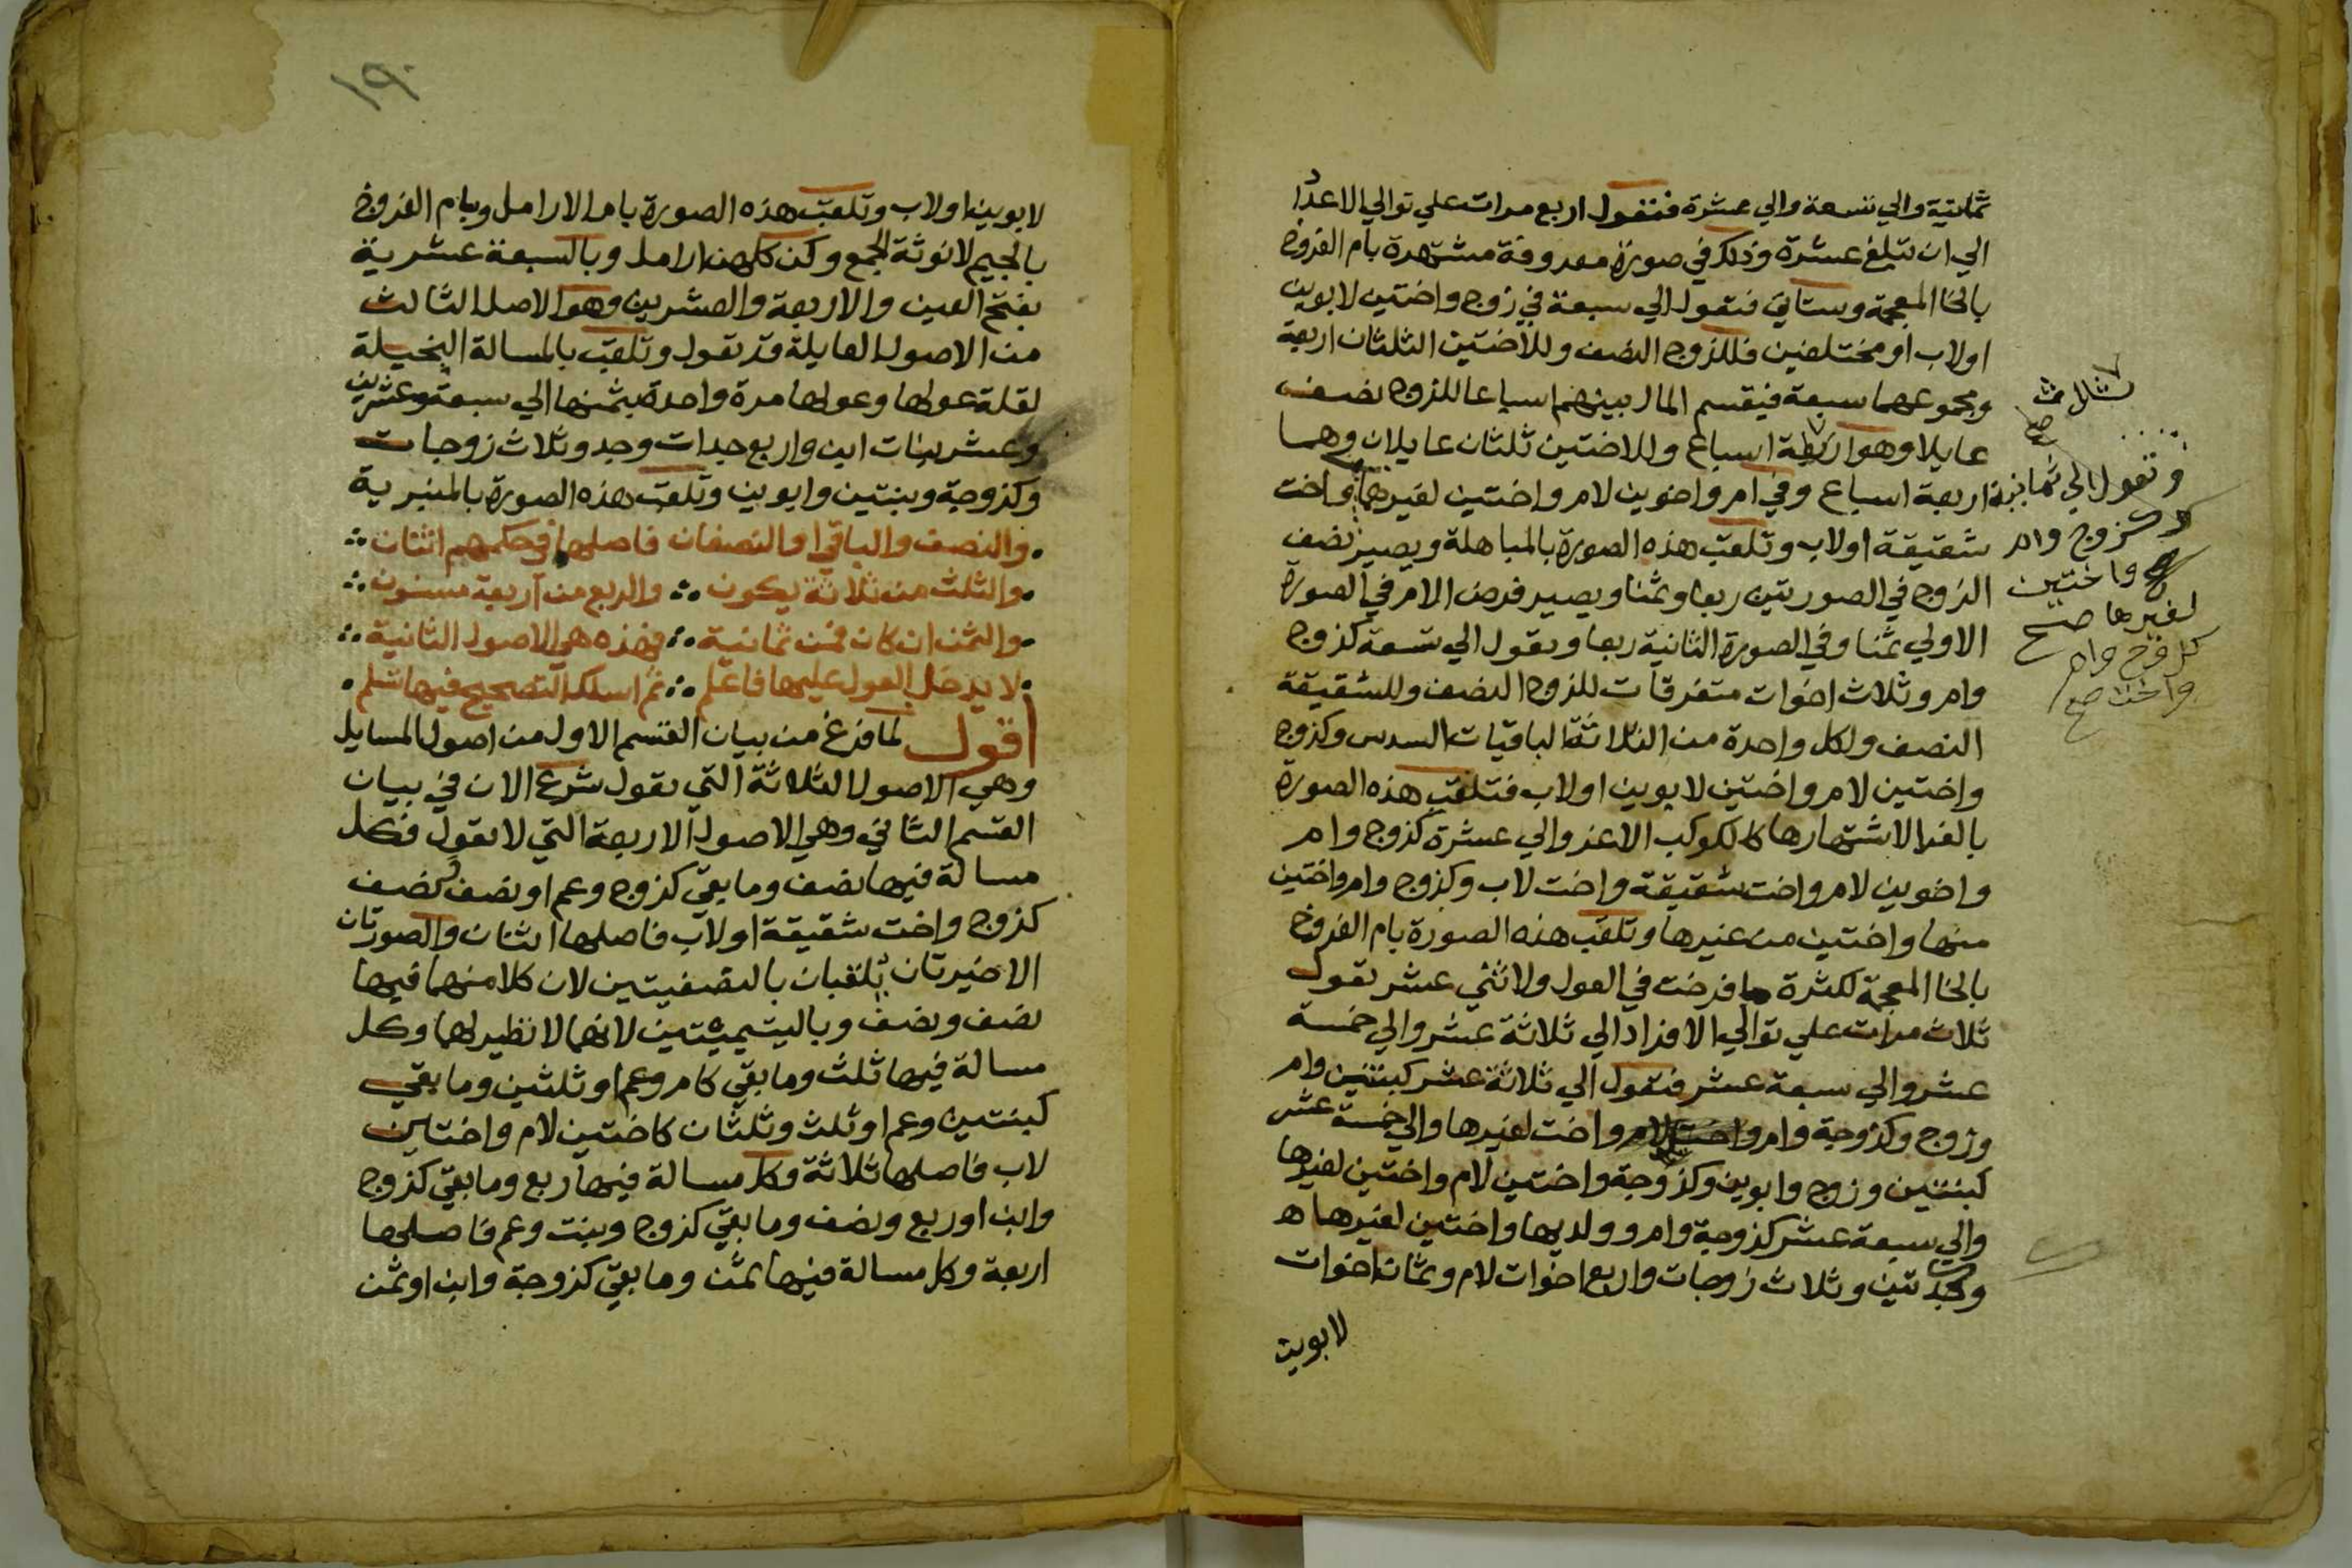 ثمانية والي تسعة والي عشرة فتعول اربع مرات علي توالي الاعداد
الي ان تبلغ عشرة وذلك في صورة معروفة مشتهرة بام الفروخ
بالخا المعجمة وستاتي فتعول الي سبعة في زوج واختين لابوين
اولاب او مختلفين فللزوج النصف وللاختين الثلثان اربعة
ومجموعهما سبعة فيقسم المال بينهم اسباعا للزوج نصف
عايلا وهو اسباع وللاختين ثلثان عايلان وهما
اربعة اسباع وفي ام واخوين لام واختين لغيرها واخت
شقيقة اولاب وتلقب هذه الصورة بالمباهلة ويصير نصف
الزوج في الصورتين ربعا وثمنا ويصير فرض الام في الصورة
الاولي ثمنا وفي الصورة الثانية ربعا وتعول الي تسعة كزوج
وام وثلاث اخوات متفرقات للزوج النصف وللشقيقة
النصف ولكل واحدة من الثلاثة الباقيات السدس وكزوج
واختين لام واختين لابوين اولاب فتلقب هذه الصورة
بالغرا لاشتهارها كالكوكب الاغر والي عشرة كزوج وام
واخوين لام واخت شقيقة واخت لاب وكزوج وام واختين
منها واختين من غيرها وتلقب هذه الصورة بام الفروخ
بالخا المعجمة لكثرة ما فرخت في العول ولاثني عشر تعول
ثلاث مرات علي توالي الافراد الي ثلاثة عشر والي خمسة
عشر والي سبعة عشر فتعول الي ثلاثة عشر كبنتين وام
وزوج وكزوجة وام واخت لغيرها والي خمسة عشر
كبنتين وزوج وابوين وكزوجة واختين لام واختين لغيرها
والي سبعة عشر كزوجة وام وولديها واختين لغيرها ه
وكجدتين وثلاث زوجات واربع اخوات لام وثمان اخوات
لابوين
وتعول الي ثمانية
كزوج وام
واختين
لغيرها صح
كزوج وام
واخت صح
١٩
لابوين اولاب وتلقب هذه الصورة بام الارامل وبام الفروج
بالجيم لانوثة الجمع وكن كلهن ارامل وبالسبعة عشرية
بفتح العين والاربعة والعشرين وهو الاصل الثالث
من الاصول العايلة قد تعول وتلقب بالمسالة البخيلة
لقلة عولها وعولها مرة واحدة بثمنها الي سبعة وعشرين
وعشر بنات ابن واربع جدات وجد وثلاث زوجات
وكزوجة وبنتين وابوين وتلقب هذه الصورة بالمنبرية
والنصف والباقي او النصفان فاصلها في حكمهم اثنان
والثلث من ثلاثة يكون والربع من اربعة مسنون
والثمن ان كان فمن ثمانية فهذه هي الاصول الثانية
لا يدخل العول عليها فاعلم ثم اسلك التصحيح فيها تسلم
أقول لما فرغ من بيان القسم الاول من اصول المسايل
وهي الاصول الثلاثة التي تعول شرع الان في بيان
القسم الثاني وهي الاصول الاربعة التي لا تعول فكل
مسالة فيها نصف وما بقي كزوج وعم او نصف ونصف
كزوج واخت شقيقة اولاب فاصلها اثنان والصورتان
الاخيرتان تلقبان بالنصفيتين لان كلا منهما فيها
نصف ونصف وباليتيميتين لانهما لا نظير لهما وكل
مسالة فيها ثلث وما بقي كام وعم او ثلثين وما بقي
كبنتين وعم او ثلث وثلثان كاختين لام واختين
لاب فاصلها ثلاثة وكل مسالة فيها ربع وما بقي كزوج
وابن او ربع ونصف وما بقي كزوج وبنت وعم فاصلها
اربعة وكل مسالة فيها ثمن وما بقي كزوجة وابن او ثمن